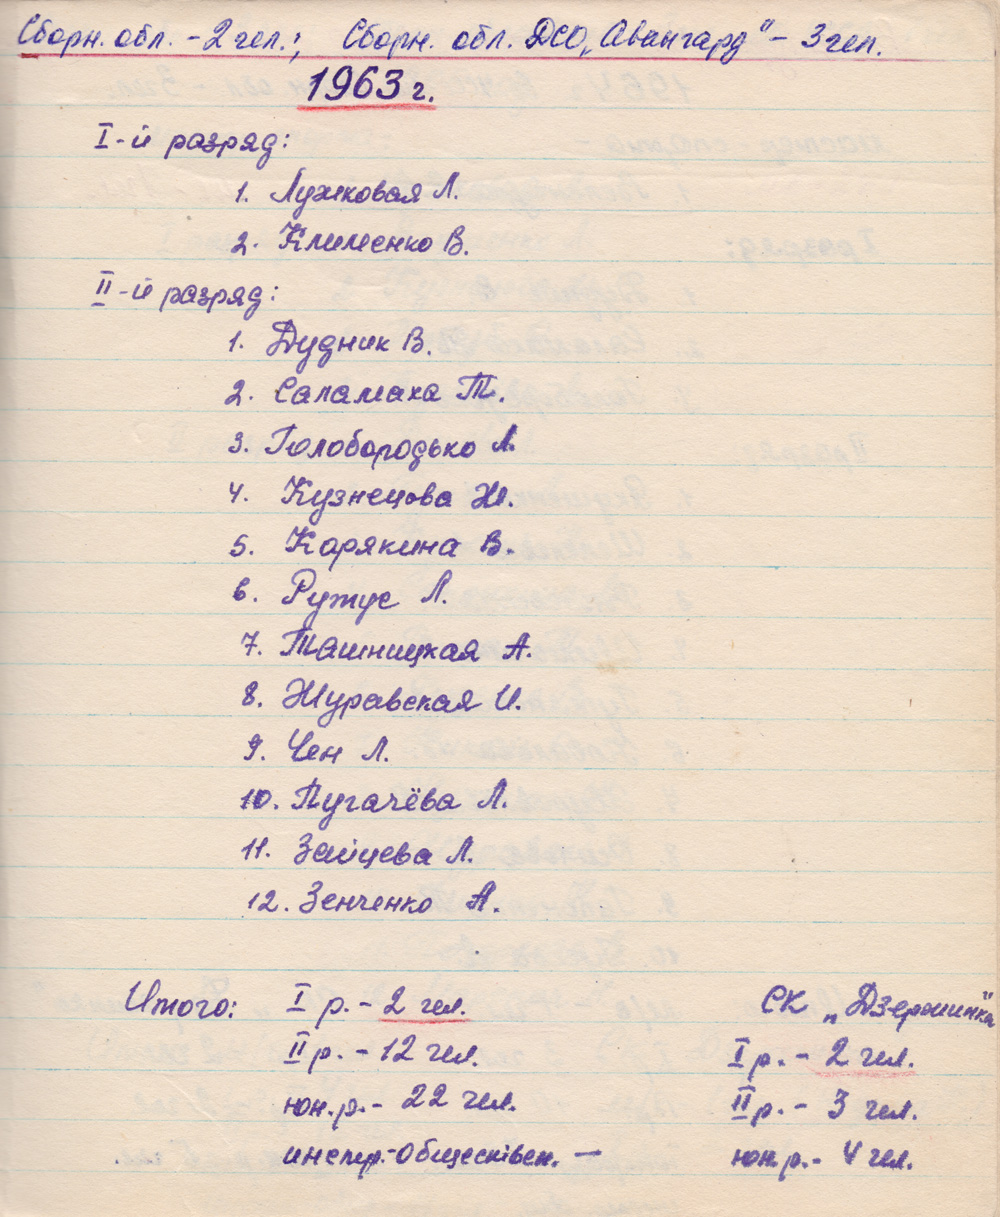 Сборн. обл. - 2 чел.; Сборн. обл. ДСО „Авангард" - 3 чел.
1963 г.
I-й разряд:
1. Лужковая Л.
2. Клименко В.
II-й разряд:
1. Дудник В.
2. Саламаха Т.
3. Голобородько Л.
4. Кузнецова Н.
5. Карякина В.
6. Ружус Л.
7. Ташницкая А.
8. Журавская И.
9. Чен Л.
10. Пугачёва Л.
11. Зайцева Л.
12. Зенченко А.
Итого: I р. - 2 чел.
II р. - 12 чел.
юн.р. - 22 чел.
инстр.-Обществен. —
СК „Дзержинка"
I р. - 2 чел.
II р. - 3 чел.
юн.р. - 4 чел.